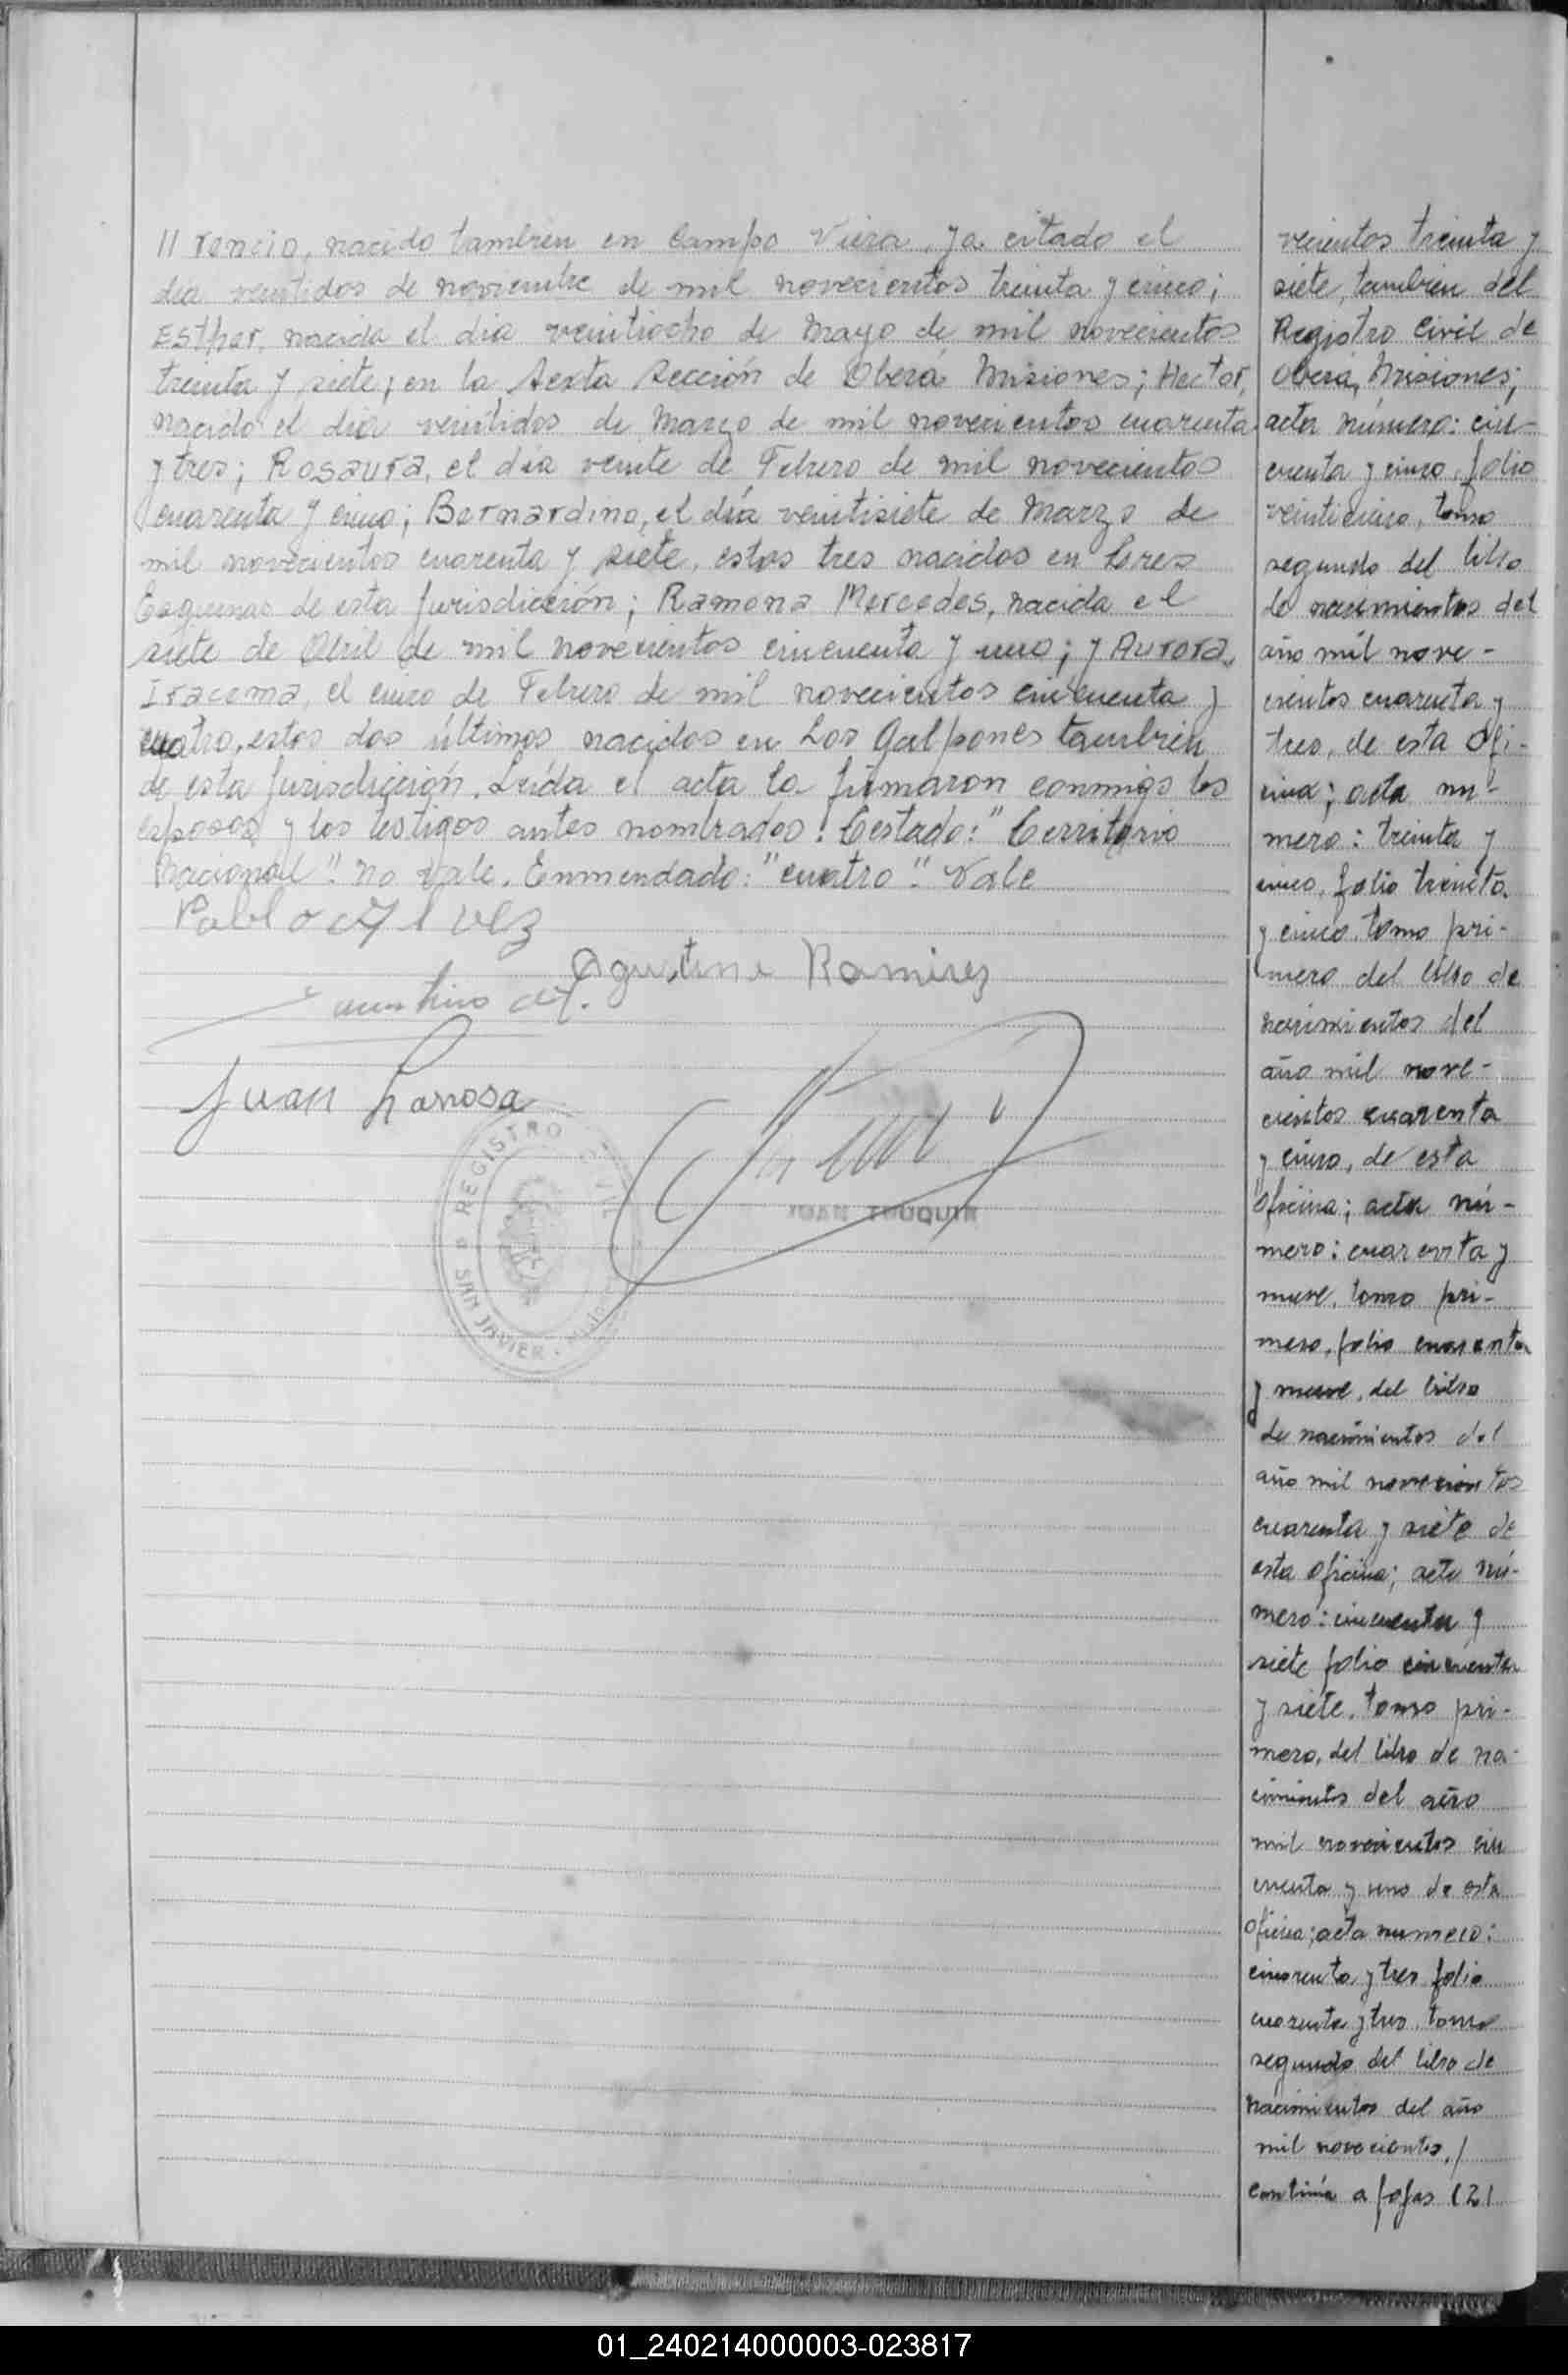 // rencio, nacido tambien en Campo Viera, ya citado el
dia veintidos de noviembre de mil novecientos treinta y cinco;
Esther, nacida el dia veintiocho de Mayo de mil novecientos
treinta y siete; en la Sexta Sección de Oberá Misiones; Hector,
nacido el dia veintidos de Marzo de mil novecientos cuarenta
y tres; Rosaura, el día veinte de Febrero de mil novecientos
cuarenta y cinco; Bernardino, el día veintisiete de Marzo de
mil novecientos cuarenta y siete, estos tres nacidos en Tres
Esquinas de esta Jurisdicción; Ramona Mercedes, nacida el
siete de Abril de mil novecientos cincuenta y uno; y Aurora
Iracema, el cinco de Febrero de mil novecientos cincuenta y
cuatro, estos dos últimos nacidos en Los Galpones tambien
de esta Jurisdicción. Leída el acta la firmaron conmigo los
esposos y los testigos antes nombrados: Testado: "Territorio
Nacional": no vale. Enmendado: "cuatro". Vale
Pablo Alvez
Agustina Ramirez
Juan Larrosa
REGISTRO CIVIL
SAN JAVIER
JUAN TOUQUIN
vecientos treinta y
siete, tambien del
Registro Civil de
Oberá, Misiones;
acta número: cin-
cuenta y cinco, folio
veinticinco, tomo
segundo del libro
de nacimientos del
año mil nove-
cientos cuarenta y
tres, de esta Ofi-
cina; acta nú-
mero: treinta y
cinco, folio treinta
y cinco, tomo pri-
mero del libro de
nacimientos del
año mil nove-
cientos cuarenta
y cinco, de esta
Oficina; acta nú-
mero: cuarenta y
nueve, tomo pri-
mero, folio cuarenta
y nueve, del libro
de nacimientos del
año mil novecientos
cuarenta y siete de
esta oficina; acta nú-
mero: cincuenta y
siete folio cincuenta
y siete, tomo pri-
mero, del libro de na-
cimientos del año
mil novecientos cin
cuenta y uno de esta
Oficina; acta numero:
cuarenta y tres folio
cuarenta y tres, tomo
segundo del libro de
nacimientos del año
mil novecientos /
continúa a fojas (2)
01_240214000003-023817